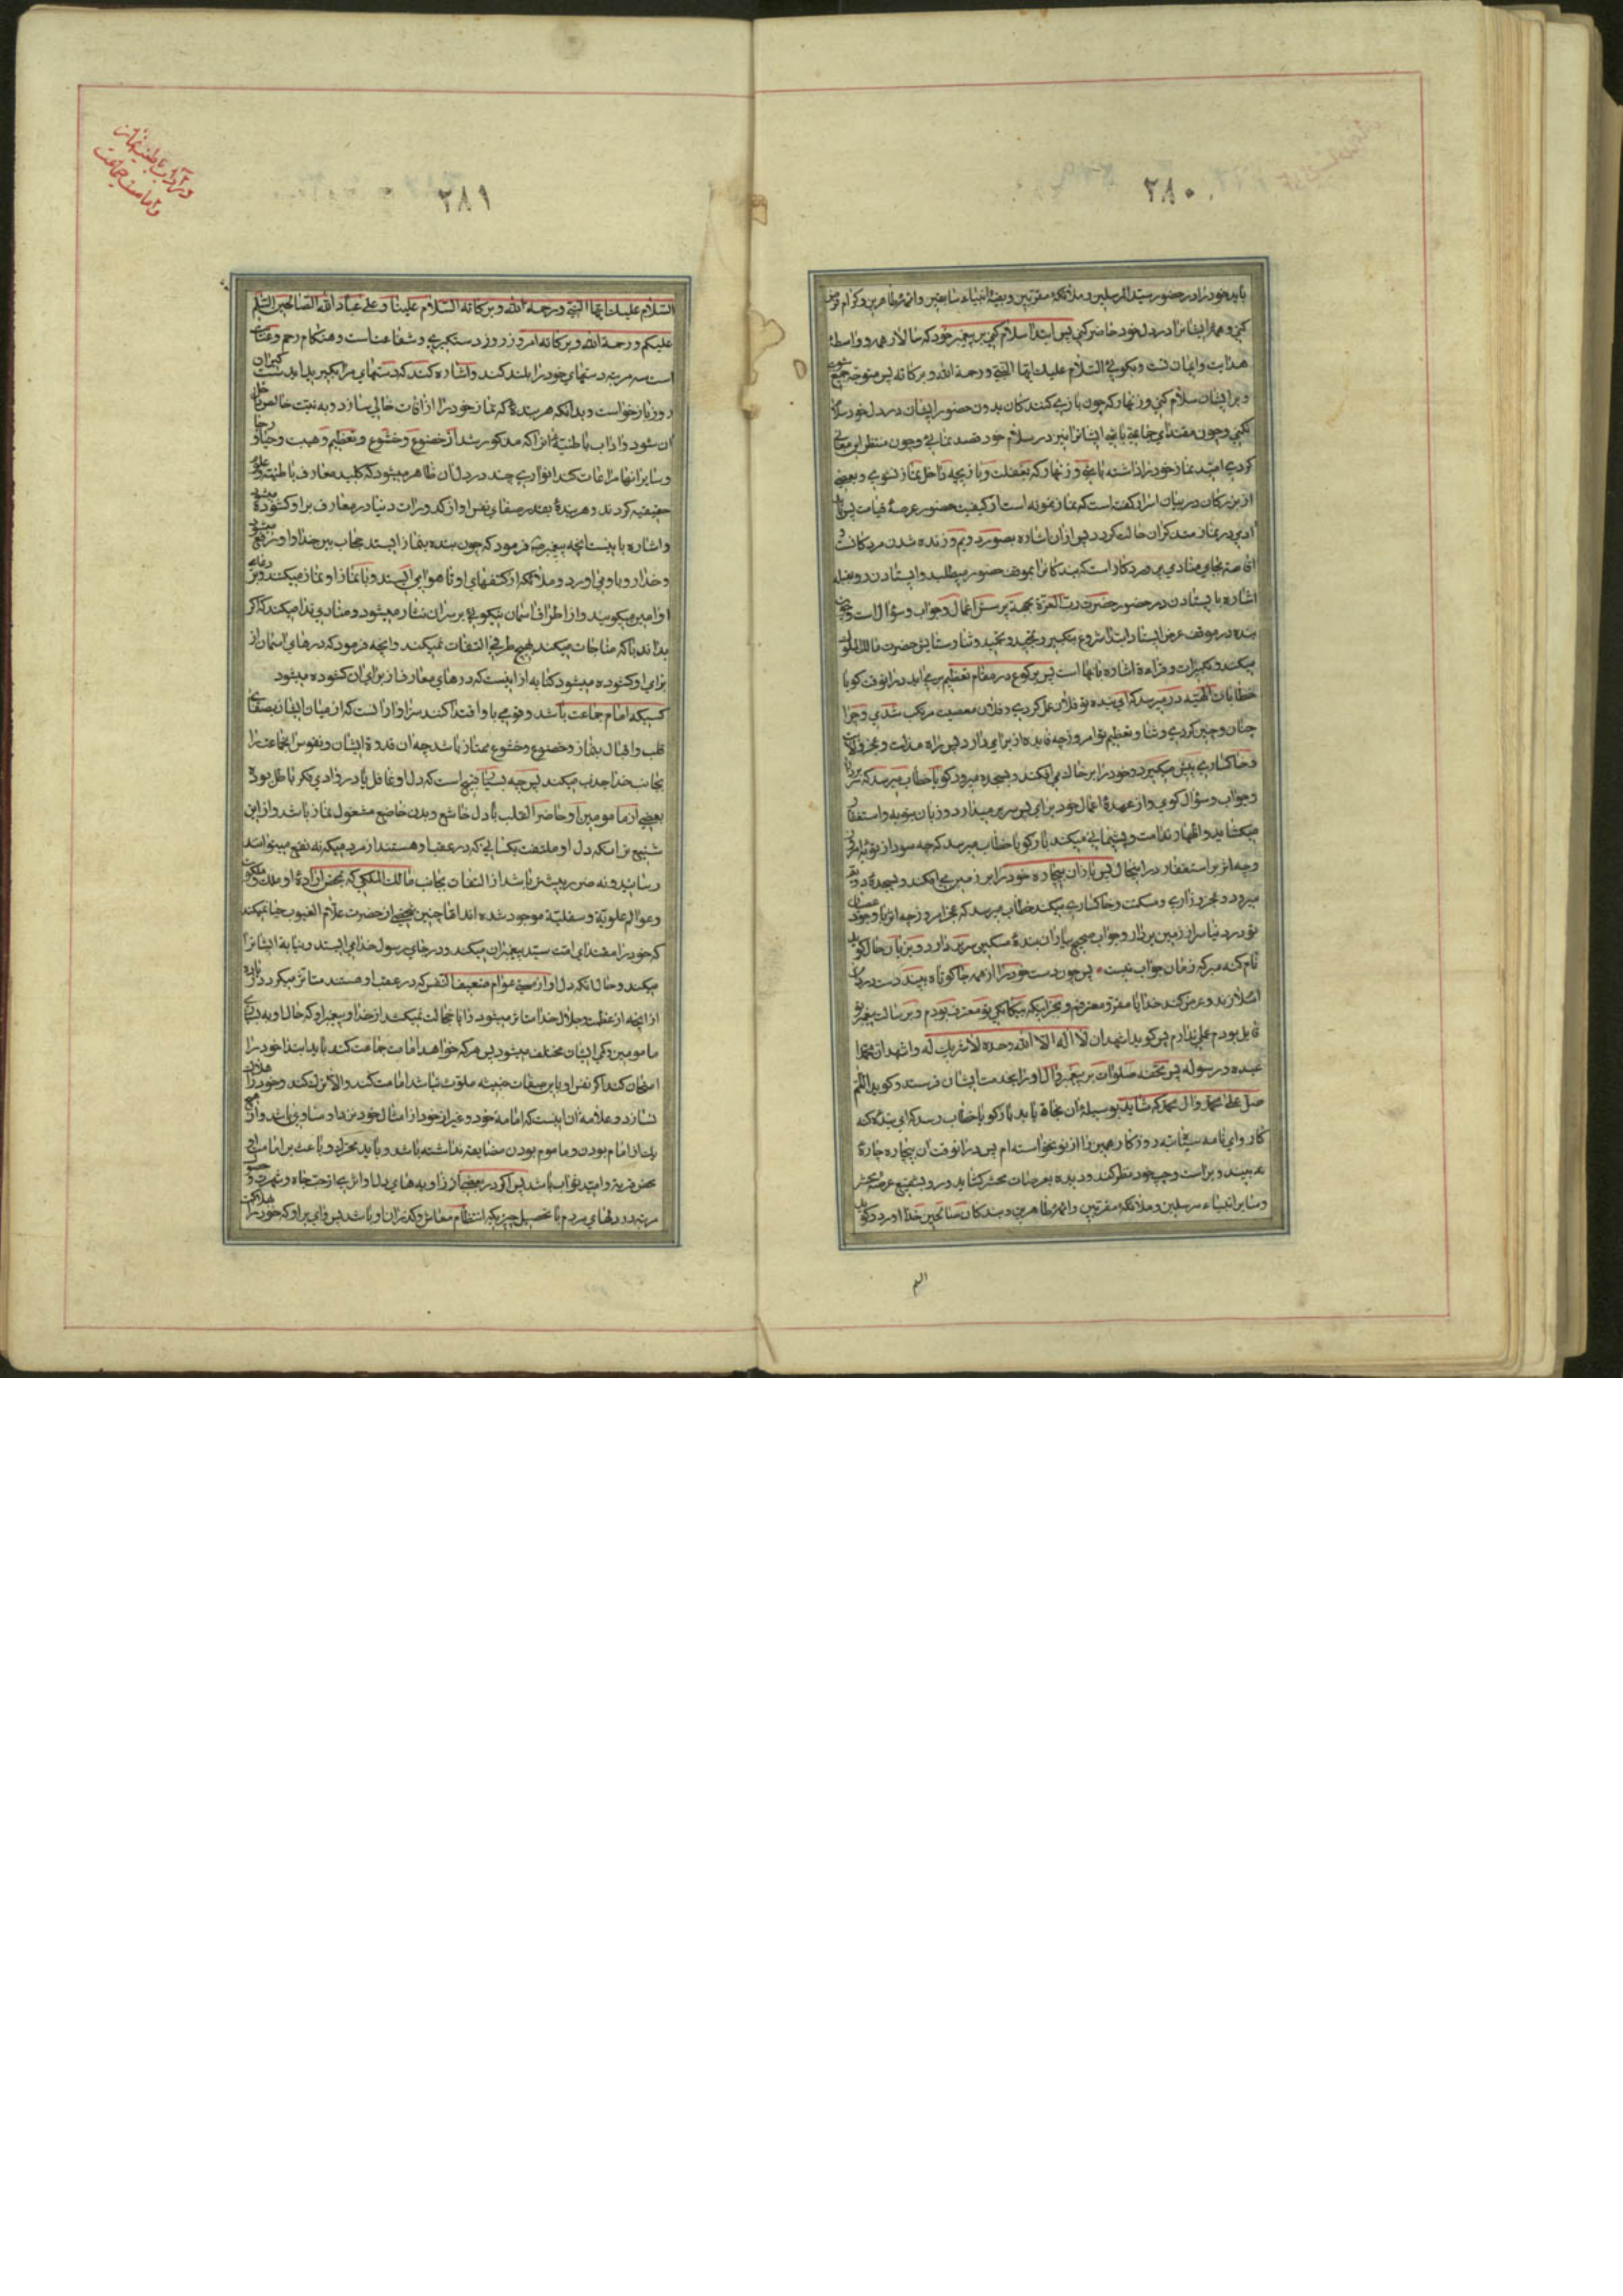 ۲۸۰
باید خود را در حضور سید المرسلین و ملائکه مقربین و بقیه انبیاء سابقین و ائمه طاهرین و کرام فرض
کنی و همه ایشانرا در دل خود حاضر کنی پس ابتدا سلام کنی بر پیغمبر خود که سالار همه و واسطه
هدایت و ایمان تست و بگویی السلام علیك ایها النبی و رحمة الله و برکاته پس متوجه جمیع شوی
و بر ایشان سلام کنی و زنهار که چون بازی کنندگان بدون حضور ایشان در دل خود سلام
نکنی و چون مقتدای جماعتی باشی ایشانرا نیز در سلام خود قصد نمائی و چون منتظر این معانی
کردی امید بنماز خود را داشته باشی و زنهار که بغفلت و بازیچه داخل نماز نشوی و بعضی
از بزرکان در بیان اسرار گفته است که نماز نمونه است از کیفیت حضور عرصه قیامت پس باید
آدمی در نماز متذکر آن حالت کردد پس اذان اشاره بصور دویم و زنده شدن مردکانست و
اقامه بجای منادی پروردکار است که بندکانرا بموقف حضور میطلبد و ایستادن رو بقبله
اشاره بایستادن در حضور حضرت رب العزة بجهة پرسش اعمال و جواب و سؤال است و چون
بنده در موقف عرض ایستاد ابتدا شروع بتکبیر و تمجید و تحمید و ثنا و ستایش حضرت مالك الملوك
میکند و تکبیرات و قراءة اشاره بآنها است پس برکوع در مقام تعظیم برمی‌آید در آنوقت کویا
خطابات الهیه در میرسد که ای بنده تو فلان عمل کردی و فلان معصیت مرتکب شدی و چرا
چنان و چنین کردی و ثنا و تعظیم تو امروز چه فایده از برای دارد پس راه مذلت و عجز و
و خاکساری پیش میکیرد و خود را بر خاك می افکند و بسجده میرود کویا خطاب میرسد که سر بردار
و جواب و سؤال کوی و از عهده اعمال خود برآی پس سر برمیدارد و زبان بتوبه و استغفار
میکشاید و اظهار ندامت و پشیمانی میکند باز کویا خطاب میرسد که چه سود از توبه امروز
و چه اثر بر استغفار در اینحال پس باز آن بیچاره خود را بر زمین می افکند و بسجده دویم
میرود و عجز و زاری و مسکنت و خاکساری میکند خطاب میرسد که عجز امروز چه اثر با وجود عصیان
تو در دنیا سر از زمین بردار و جواب صحیح بیار آن بنده مسکین سر بر دارد و بزبان حال کوید
نام کنه مبر که زمان جواب نیست پس چون دست خود را از همه جا کوتاه بیند دست در دامن
اسلام زند و عرض کند خدایا مقر و معترفم و بجز اینکه بیکانکی تو معترف بودم و برسالت پیغمبر تو
قایل بودم عملی ندارم پس کوید اشهد ان لا اله الا الله وحده لا شریك له و اشهد ان محمدا
عبده و رسوله پس تحفه صلوات بر پیغمبر و آل او را بخدمت ایشان فرستد و کوید اللهم
صل علی محمد و آل محمد که شاید بوسیله آن نجاة یابد باز کویا خطاب رسد که ای بنده کنه
کار و ای نامه سیه روزکار همین را از تو نخواسته ام پس در آنوقت آن بیچاره چاره
نه بیند و براست و چپ خود نظر کند و دیده بعرصات محشر کشاید و رو بشفیع عرصه محشر
و سایر انبیاء مرسلین و ملائکه مقربین و ائمه طاهرین و بندکان صالحین خدا آورد و کوید
السلام
۲۸۱
در آداب باطنیه نماز
و امامت جماعت
السلام علیك ایها النبی و رحمة الله و برکاته السلام علینا و علی عباد الله الصالحین السلام
علیکم و رحمة الله و برکاته امروز روز دستکیری و شفاعتست و هنکام رحم و عنایت
است سه مرتبه دستهای خود را بلند کند و اشاره کند که دستهای مرا بکیرید امید
روز بازخواست و بدانکه هر بندهٔ که نماز خود را از آفات خالی سازد و به نیت خالص
آن شود و آداب باطنیهٔ آنرا که مذکور شد از خضوع و خشوع و تعظیم و هیبت و حیا و رجا
و سایر آنها مراعات کند انواری چند در دل آن ظاهر میشود که کلید معارف باطنیه و علوم
حقیقیه کردند و هر بندهٔ بقدر صفای نفس او از کدورات دنیا در معارف بر او کشوده میشود
و اشاره باینست آنچه پیغمبر ص فرمود که چون بنده بنماز ایستد حجاب بین خدا و او رفع میشود
و خدا رو باو می آورد و ملائکه از کتفهای او تا هوا می ایستند و با نماز او نماز میکنند و بر دعای
او آمین میکویند و از اطراف آسمان نیکویی بر سر آن نثار میشود و منادی ندا میکند که اکر
بداند با که مناجات میکند بهیچ طرفی التفات نمیکند و آنچه فرمود که درهای آسمان از
برای او کشوده میشود کنایه از اینست که درهای معارف از برای آن کشوده میشود
کسیکه امام جماعت باشد و قومی باو اقتدا کنند سزاوار آنست که از میان ایشان بصفای
قلب و اقبال بنماز و خضوع و خشوع ممتاز باشد چه آن قدوة ایشان و نفوس جماعت را
بجانب خدا جذب میکند پس چه بسیار قبیح است که دل او غافل یا در وادی فکر باطل بوده
بعضی از مأمومین او حاضر القلب با دل خاشع و بدن خاضع مشغول نماز باشد و از این
شنیع تر آنکه دل او ملتفت بکسانی که در عقب او هستند از مردمیکه نه نفع میتوانند
رسانید و نه ضرر بیشتر باشد از التفات بجانب مالك الملکی که بمحض ارادهٔ او ملك و ملکوت
و عوالم علویة و سفلیة موجود شده اند آیا چنین شخصی از حضرت علام الغیوب حیا نمیکند
که خود را مقتدای امت سید پیغمبران میکند و در جای رسول خدا می ایستد و نیابة ایشانرا
میکند و حال آنکه دل او از عوام ضعیف النفس که در عقب او هستند متأثر میکردد زیاده
از آنچه از عظمت و جلال خدا متأثر میشود و آیا خجالت نمیکشد از خدا و پیغمبر او که حال او
مأمومین و کمی ایشان مختلف میشود پس هرکه خواهد امامت جماعت کند باید ابتدا خود را
امتحان کند اکر نفس او باین صفات خبیثه ملوث نباشد امامت کند و الا ترك کند و خود را هلاك
نسازد و علامة آن اینست که امامة خود و غیر از خود از امثال خود نزد او مساوی باشد و از هیچ
یك از امام بودن و مأموم بودن مضایقه نداشته باشد و باید محرك و باعث بر امامت او
محض قربة و امید ثواب باشد پس اکر در بعضی از زاویه های دل او اثری از حب جاه و شهرت و
مرتبه در دلهای مردم یا تحصیل چیزیکه انتظام معاش و کذران او باشد پس وای بر او که خود را